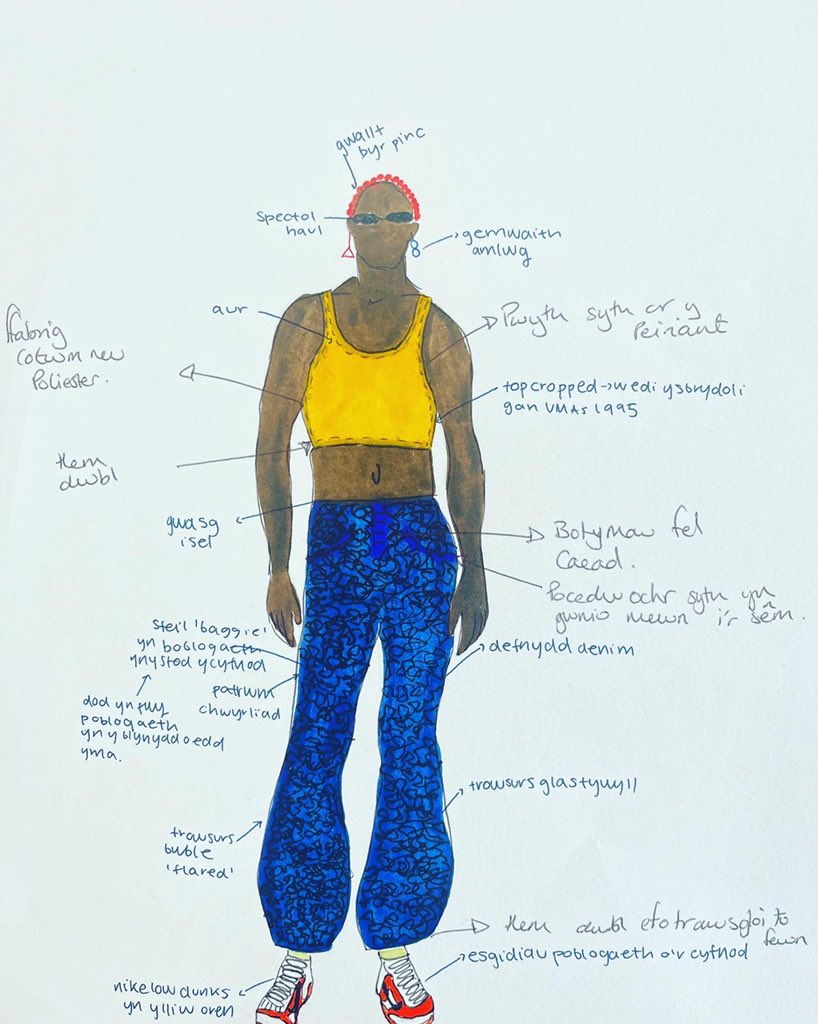 gwallt
byr pinc
spectol
haul
gemwaith
amlwg
aur
Pwyth syth ar y
Peiriant
Ffabrig
Cotwm neu
Poliester.
top cropped → wedi ysbrydoli
gan VMAs 1995
Hem
dwbl
gwasg
isel
Botymau fel
Caead.
Pocedw ochr syth yn
gwnio mewn i'r sêm.
steil 'baggie'
yn boblogaeth
ynystod y cyfnod
defnydd denim
patrwm
chwyrliad
dod yn fwy
poblogaeth
yn y blynyddoedd
yma.
trowsurs glas tywyll
trowsurs
buble
'flared'
Hem dwbl efo
fewn
esgidiau poblogaeth o'r cyfnod
nike low dunks
yn y lliw oren